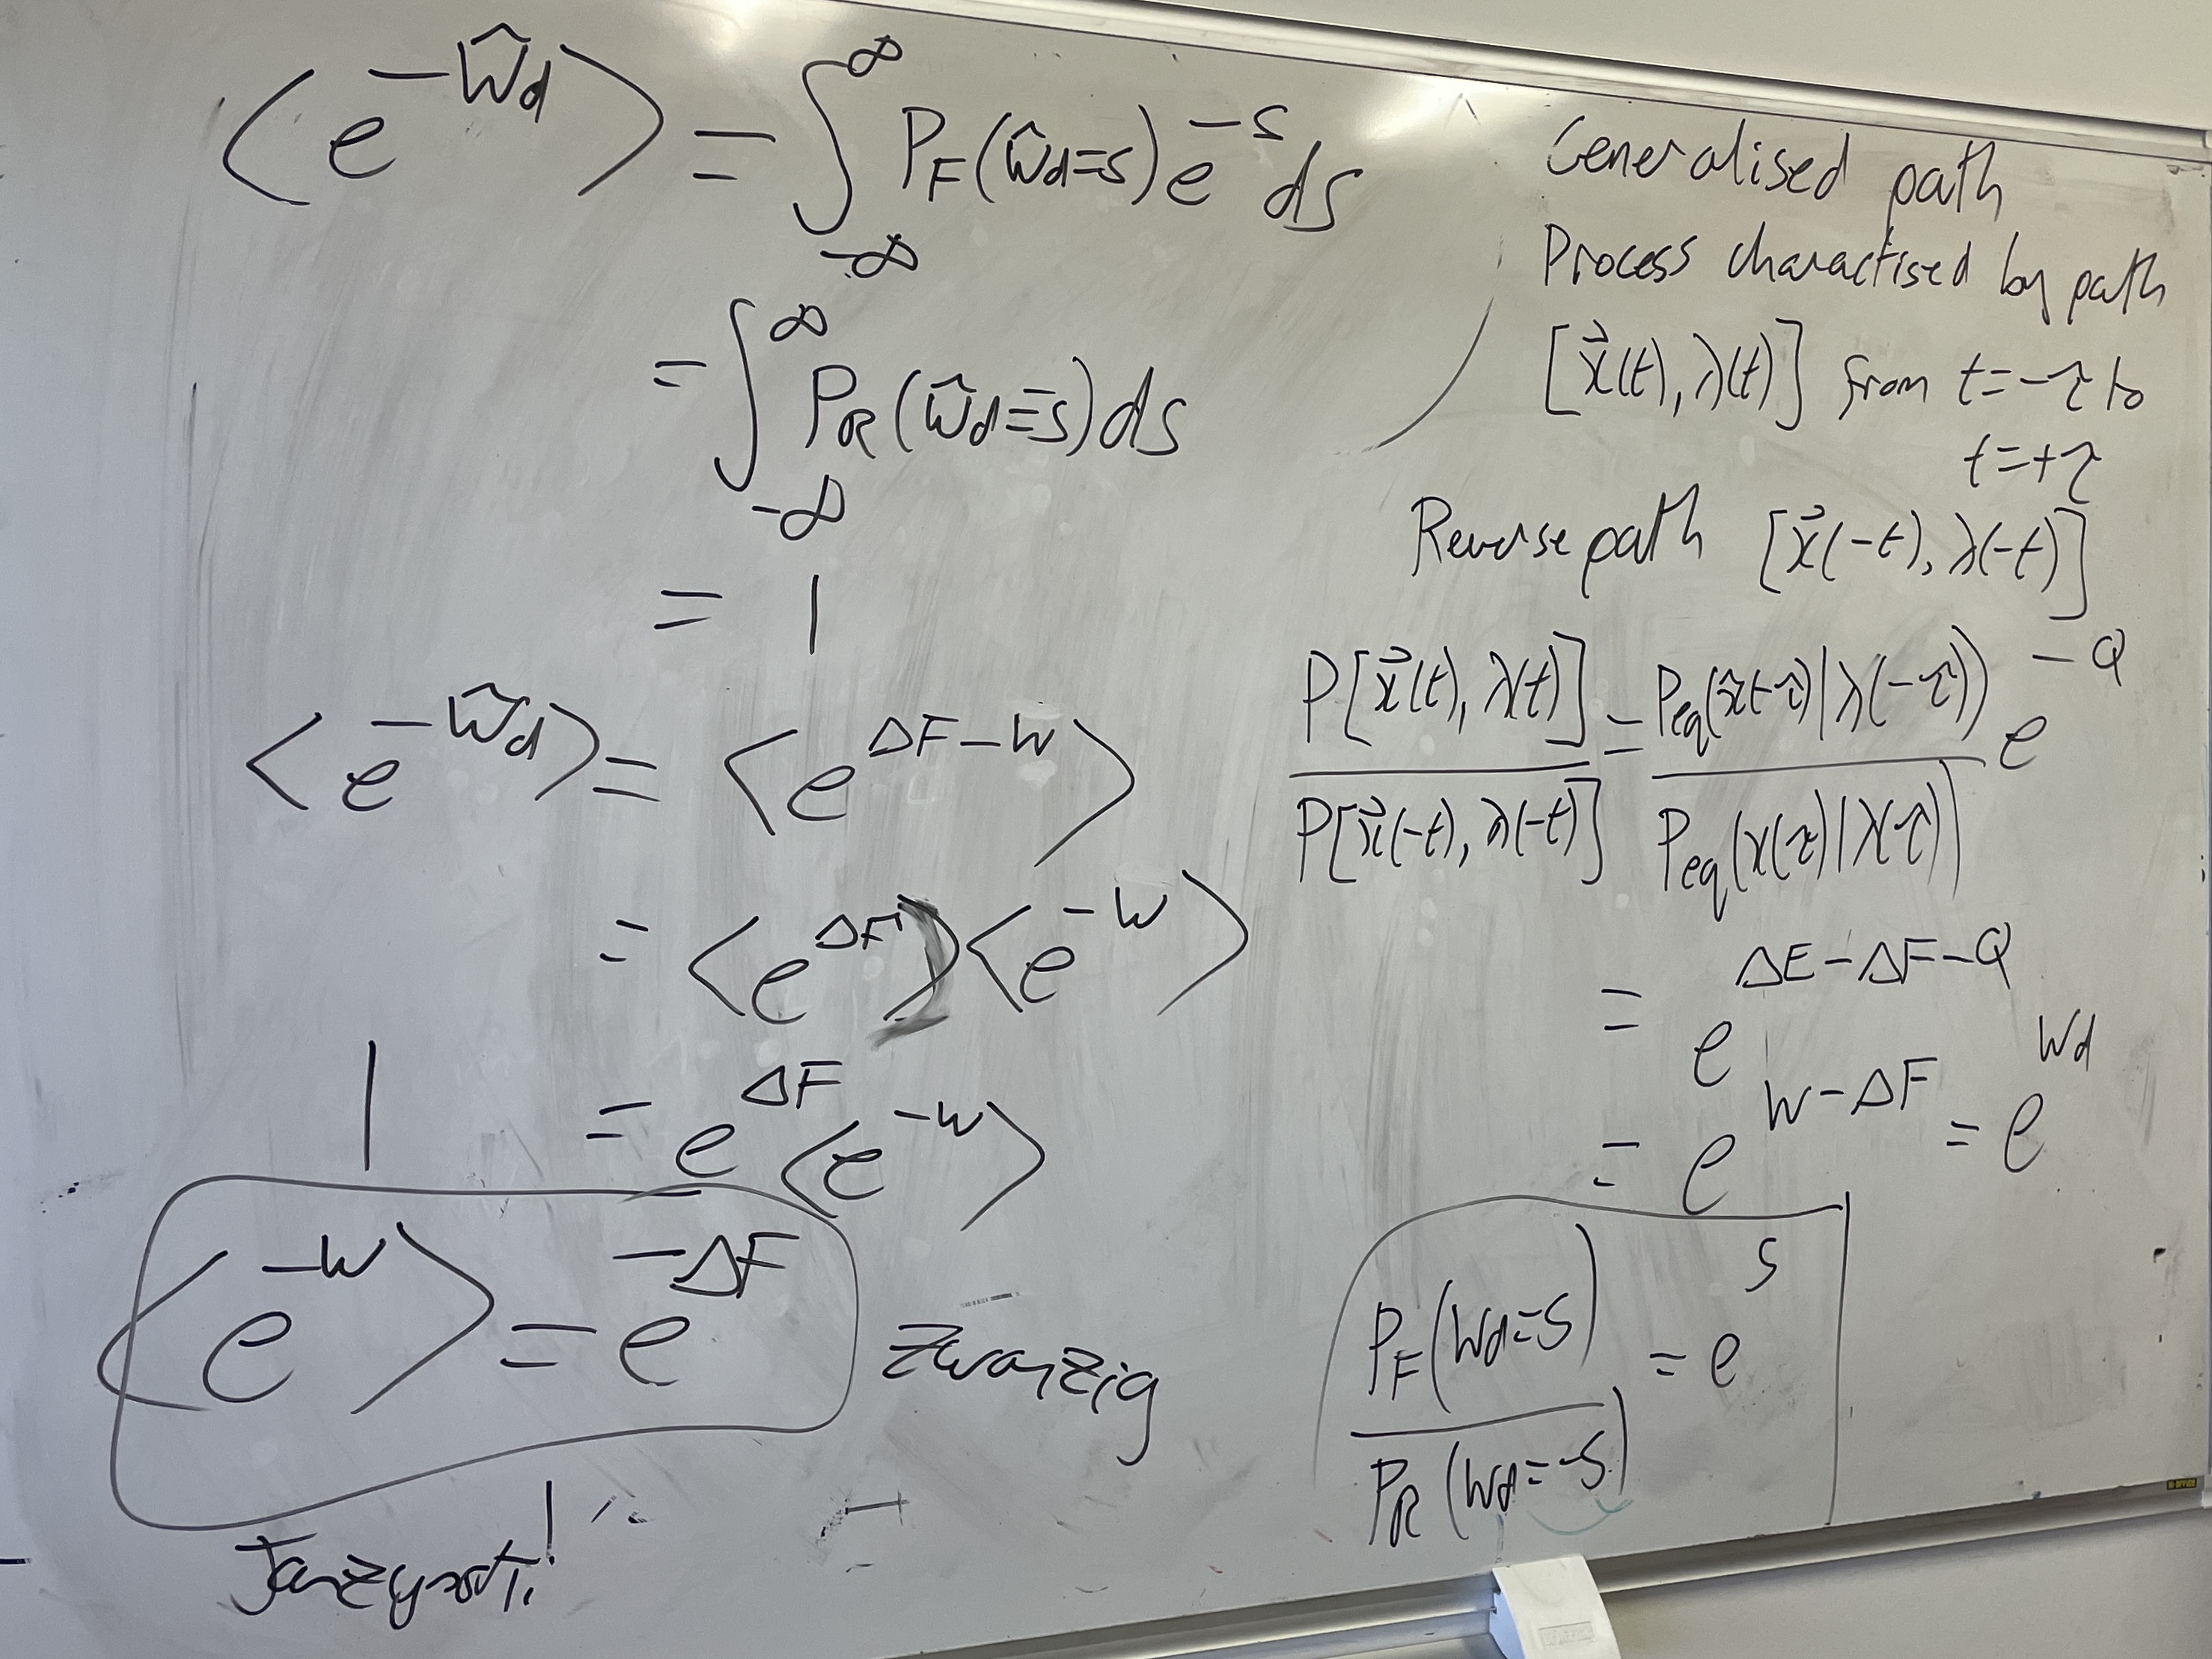 ⟨e^{-Ŵd}⟩ = ∫_{-∞}^{∞} P_F(Ŵd=s) e^{-s} ds
= ∫_{-∞}^{∞} P_R(Ŵd=-s) ds
= 1
⟨e^{-Ŵd}⟩ = ⟨e^{ΔF-W}⟩
= ⟨e^{ΔF}⟩⟨e^{-W}⟩
1 = e^{ΔF}⟨e^{-W}⟩
⟨e^{-W}⟩ = e^{-ΔF} Zwanzig
Jarzynski!
Generalised path
Process charactised by path
[x⃗(t), λ(t)] from t=-τ to
t=+τ
Reverse path [x⃗(-t), λ(-t)]
P[x⃗(t), λ(t)] / P[x⃗(-t), λ(-t)] = Peq(x⃗(-τ)|λ(-τ)) / Peq(x(τ)|λ(τ)) e^{-Q}
= e^{ΔE-ΔF-Q}
= e^{W-ΔF} = e^{Wd}
P_F(Wd=s) / P_R(Wd=-s) = e^{s}